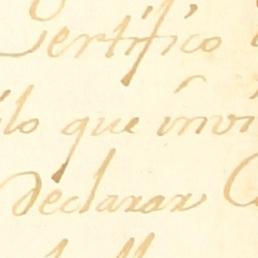 Certifico
ilo que invi
declarar C